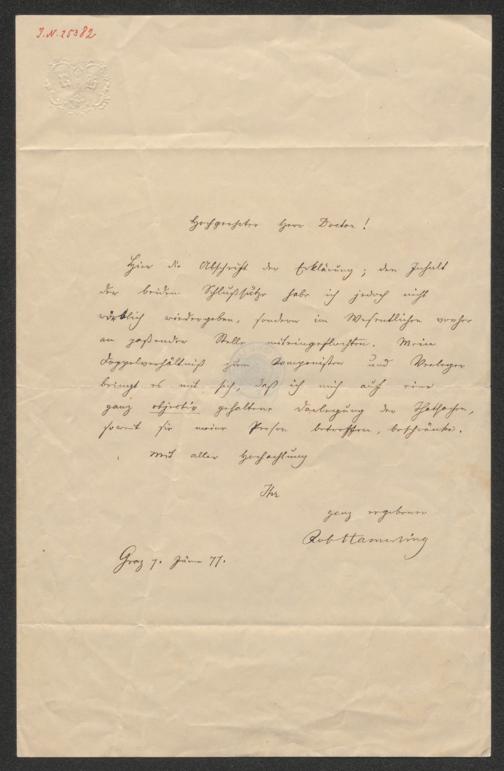 J.N. 25382
Hochgeehrter Herr Doctor!
Hier die Abschrift der Erklärung; den Inhalt
der beiden Schlußsätze habe ich jedoch nicht
wörtlich wiedergegeben, sondern im Wesentlichen vorher
an passender Stelle miteingeflochten. Mein
Doppelverhältniß zum Componisten und Verleger
bringt es mit sich, daß ich mich auf eine
ganz objectiv gehaltene Darlegung der Thatsachen,
soweit sie meine Person betreffen, beschränke.
Mit aller Hochachtung
Ihr
ganz ergebener
Rob Hamerling
Graz 7. Juni 77.